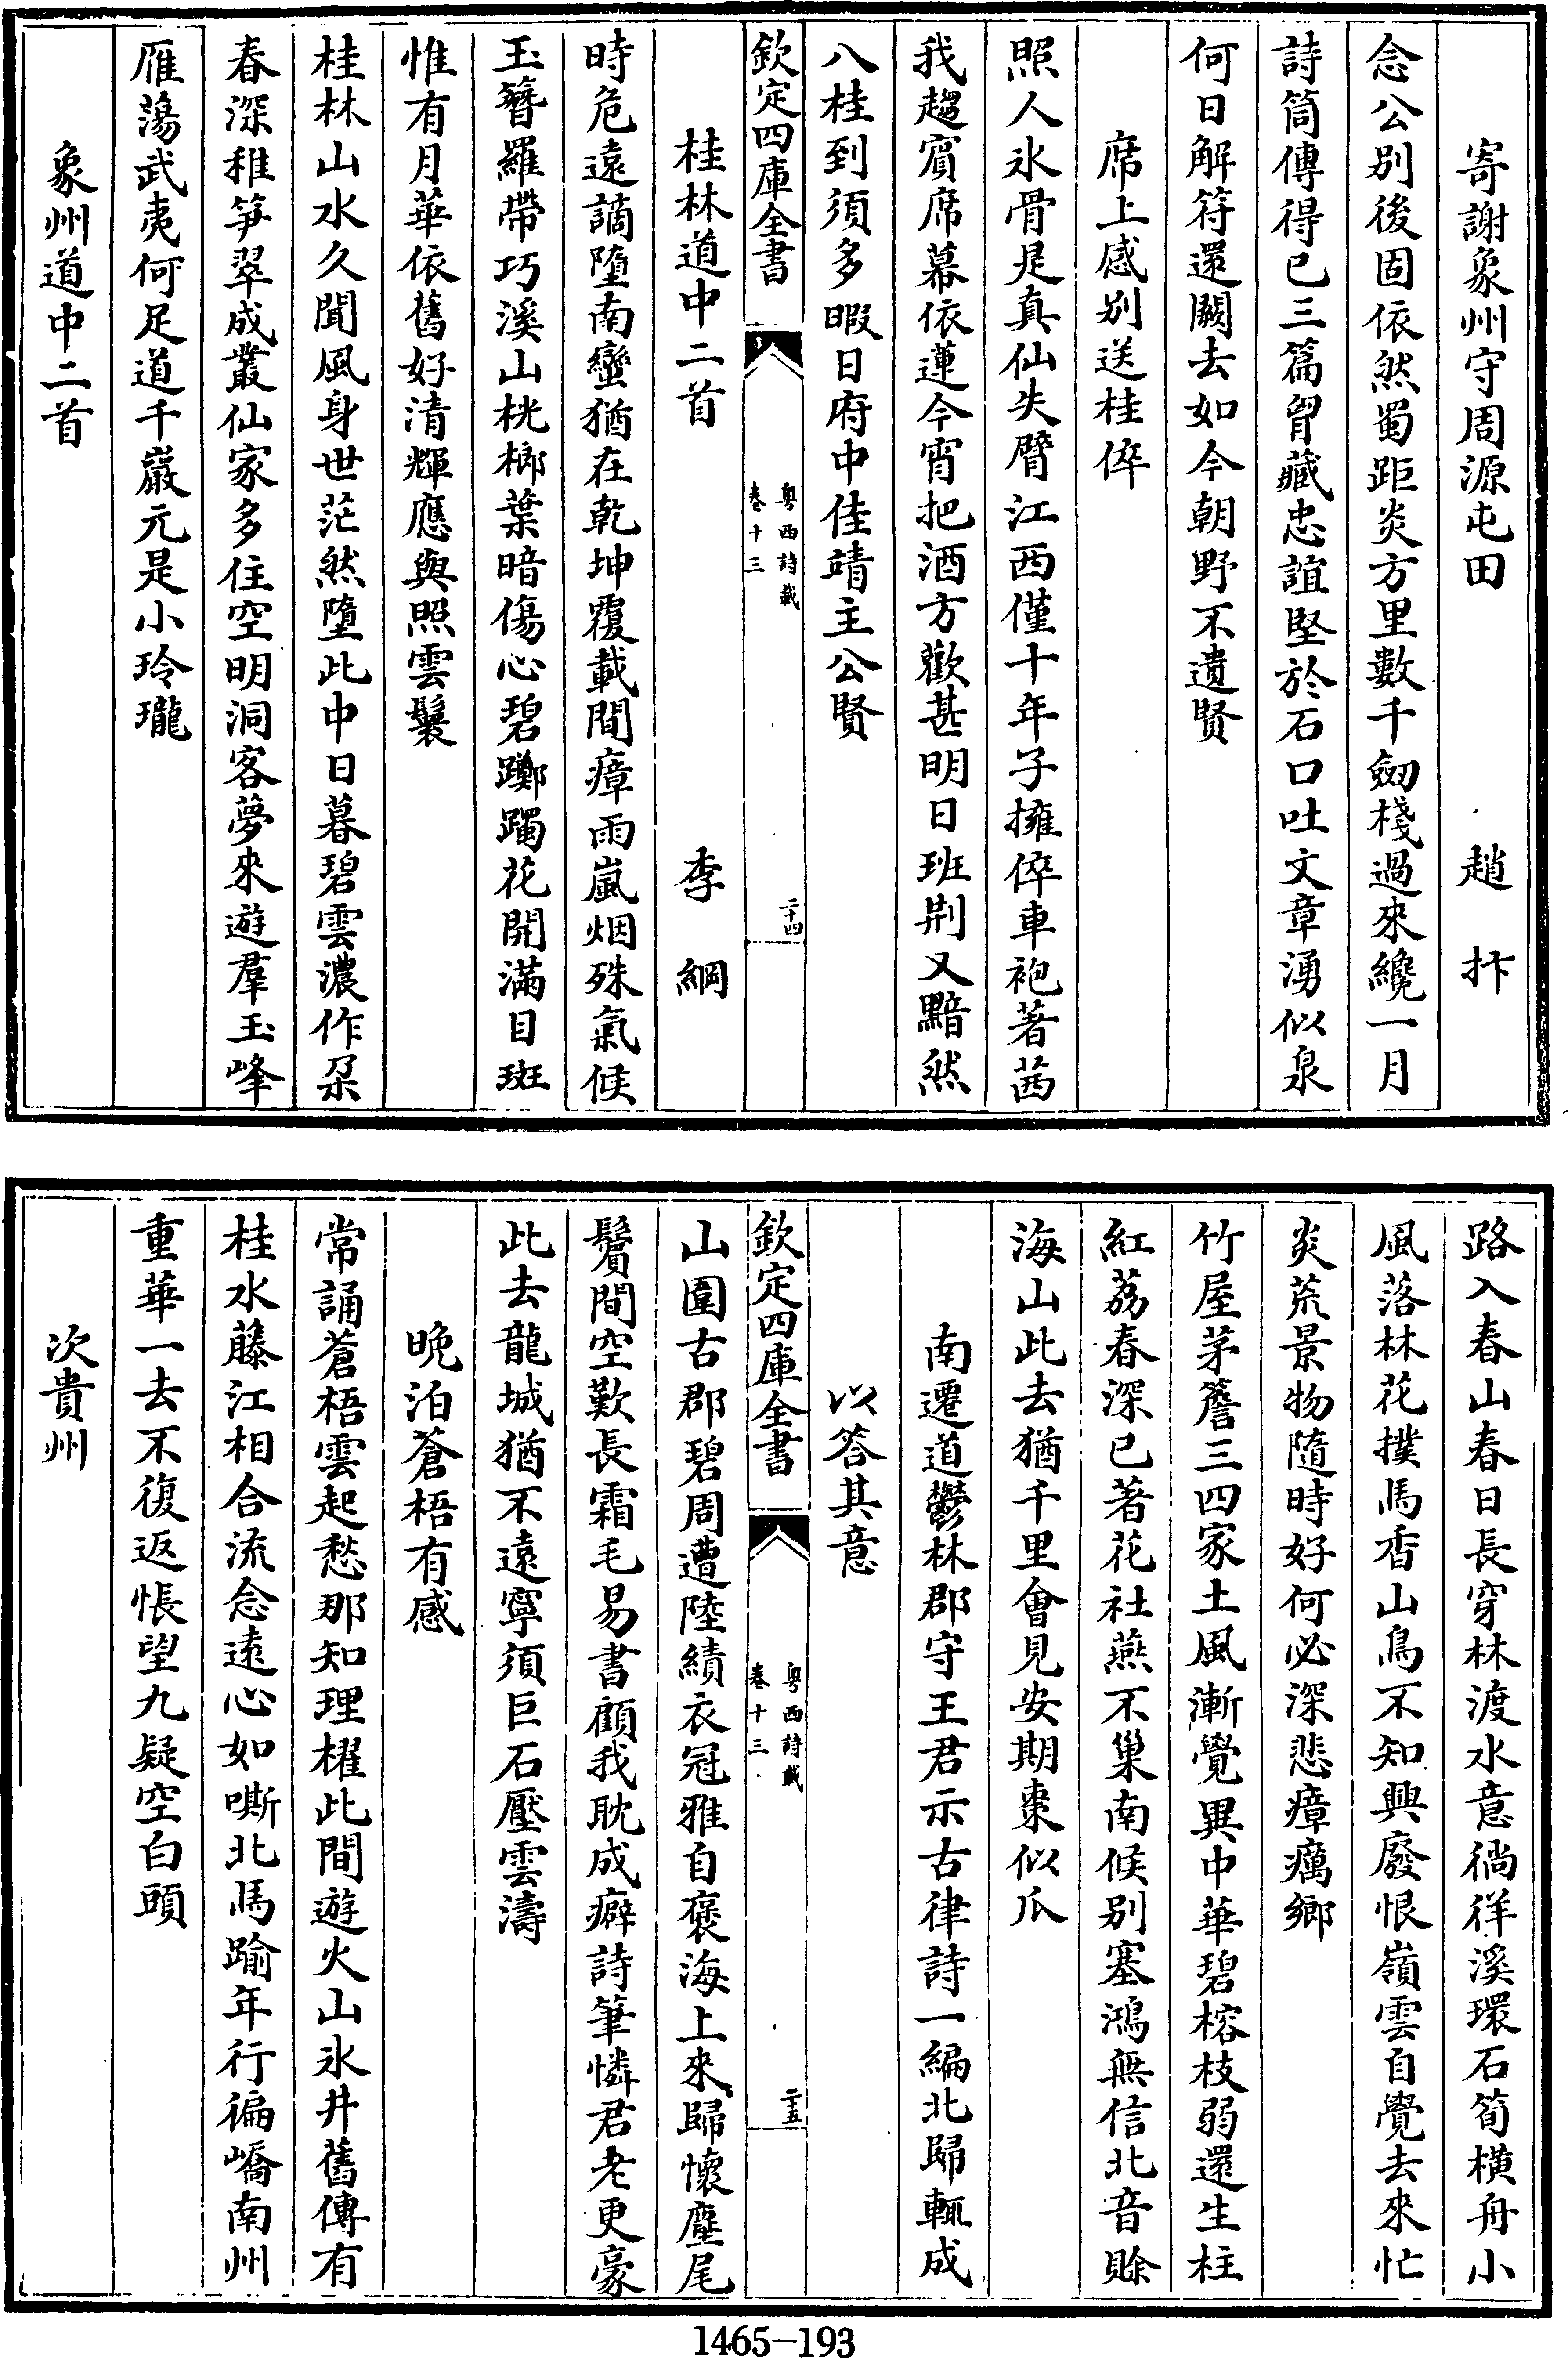 寄謝象州守周源屯田　趙抃
念公别後固依然蜀距炎方里數千劔棧過來纔一月
詩筒傳得已三篇胷藏忠誼堅於石口吐文章湧似泉
何日解符還闕去如今朝野不遺賢
席上感别送桂倅
照人氷骨是真仙失臂江西僅十年子擁倅車袍著茜
我趨賓席幕依蓮今宵把酒方歡甚明日班荆又黯然
八桂到須多暇日府中佳靖主公賢
欽定四庫全書
粤西詩載
卷十三
二十四
桂林道中二首　李綱
時危遠謫墮南蠻猶在乾坤覆載間瘴雨嵐烟殊氣候
玉簪羅帶巧溪山桄榔葉暗傷心碧躑躅花開滿目斑
惟有月華依舊好清輝應與照雲鬟
桂林山水久聞風身世茫然墮此中日暮碧雲濃作朶
春深稚笋翠成叢仙家多住空明洞客夢來遊羣玉峰
雁蕩武夷何足道千巖元是小玲瓏
象州道中二首
路入春山春日長穿林渡水意徜徉溪環石筍横舟小
風落林花撲馬香山鳥不知興廢恨嶺雲自覺去來忙
炎荒景物隨時好何必深悲瘴癘鄉
竹屋茅簷三四家土風漸覺異中華碧榕枝弱還生柱
紅荔春深已著花社燕不巢南候别塞鴻無信北音賖
海山此去猶千里會見安期棗似瓜
南遷道鬱林郡守王君示古律詩一編北歸輒成
以答其意
欽定四庫全書
粤西詩載
卷十三
二十五
山圍古郡碧周遭陸績衣冠雅自褒海上來歸懷麈尾
鬢間空歎長霜毛易書顧我耽成癖詩筆憐君老更豪
此去龍城猶不遠寧須巨石壓雲濤
晚泊蒼梧有感
常誦蒼梧雲起愁那知理櫂此間遊火山氷井舊傳有
桂水藤江相合流念遠心如嘶北馬踰年行徧嶠南州
重華一去不復返悵望九疑空白頭
次貴州
1465－193